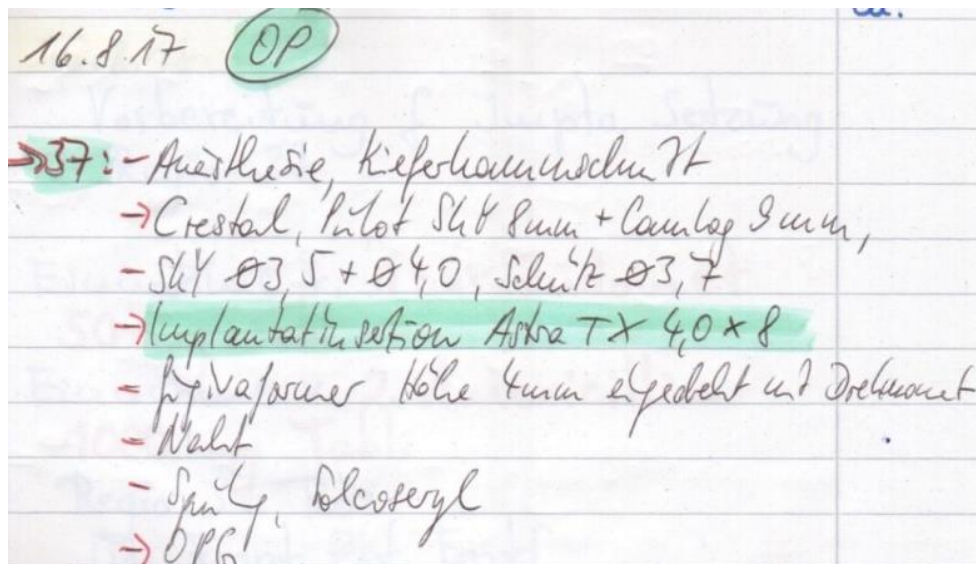 16.8.17 OP
37: - Anästhesie, Kieferkammschnitt
→ Crestal, Pilot SKY 8mm + Camlog 9mm,
- SKY Ø3,5 + Ø4,0, Schütz Ø3,7
→ Implantatinsertion Astra TX 4,0 x 8
- Gingivaformer Höhe 4mm eingedreht mit Drehmoment
- Naht
- Spülg, Solcoseryl
→ OPG